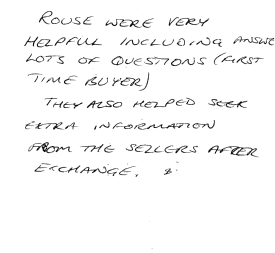 ROUSE WERE VERY
HELPFUL INCLUDING ANSWE
LOTS OF QUESTIONS (FIRST
TIME BUYER)
THEY ALSO HELPED SEEK
EXTRA INFORMATION
FROM THE SELLERS AFTER
EXCHANGE.